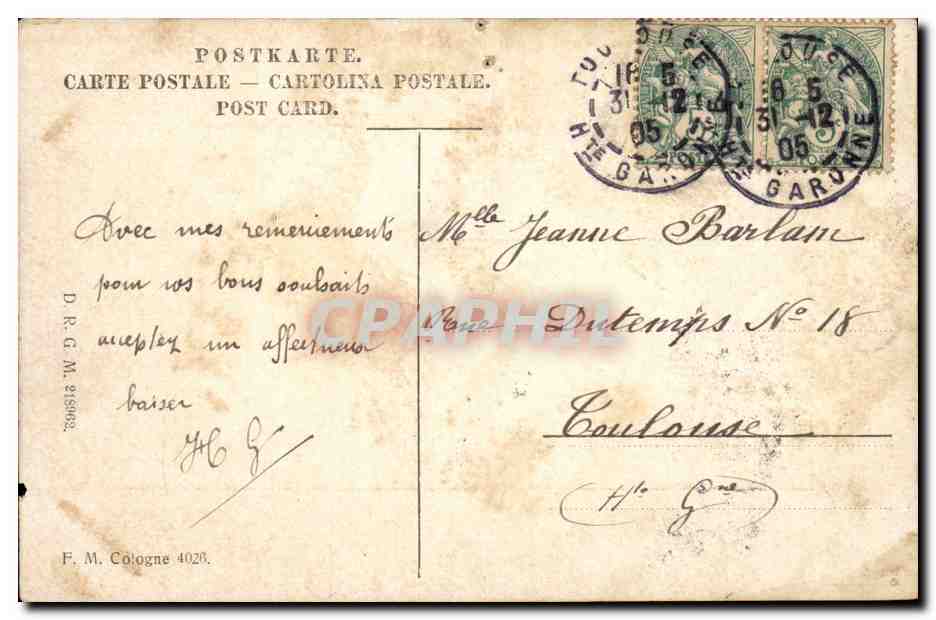 POSTKARTE.
CARTE POSTALE — CARTOLINA POSTALE.
POST CARD.
TOULOUSE
16 5
31 -12
05
Hte GARONNE
OUSE
6 5
31 -12
05
Hte GARONNE
Avec mes remerciements
pour vos bons souhaits
acceptez un affectueux
baiser
H G
Mlle Jeanne Barlam
Rue Dutemps No 18
Toulouse
Hte Gne
D. R. G. M. 218963.
F. M. Cologne 4026.
CPAPHIL